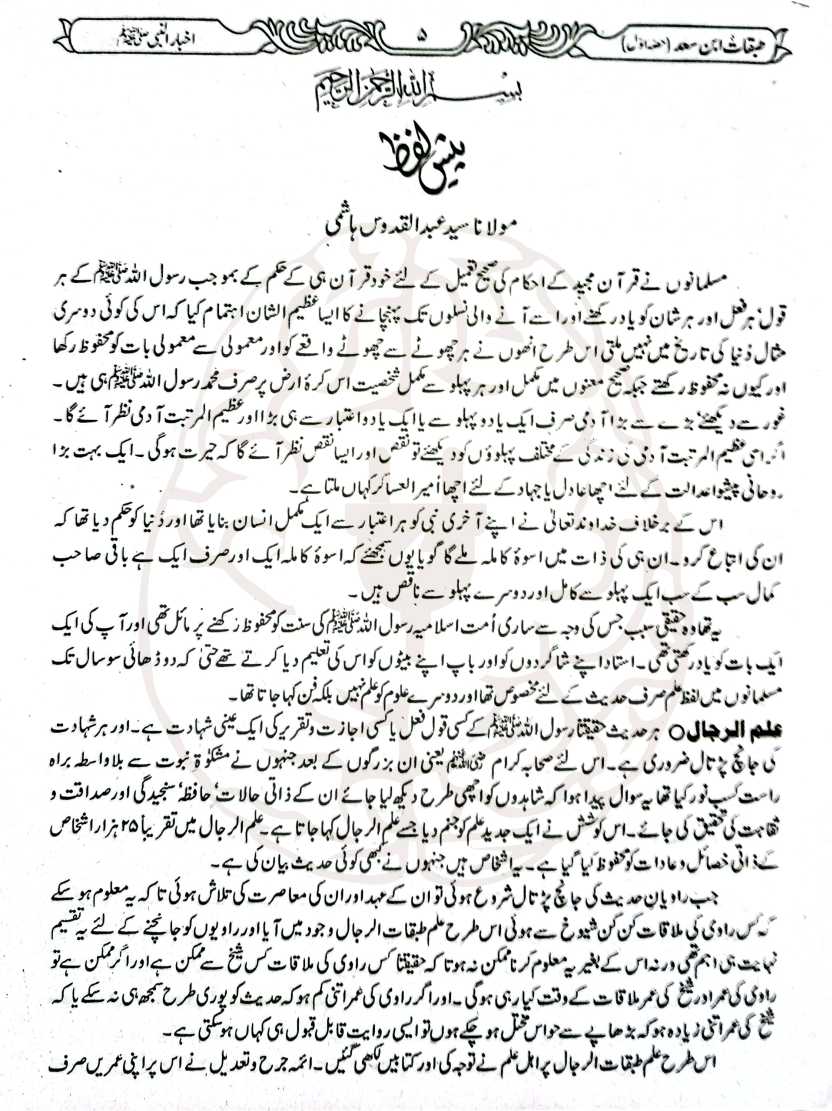 طبقات ابن سعد (حصہ اوّل) ۵ اخبار النبی ﷺ
بسم اللہ الرحمٰن الرحیم
پیش لفظ
مولانا سید عبدالقدوس ہاشمی
مسلمانوں نے قرآن مجید کے احکام کی صحیح تعمیل کے لئے خود قرآن ہی کے حکم کے بموجب رسول اللہ ﷺ کے ہر
قول‘ ہر فعل اور ہر شان کو یاد رکھنے اور اسے آنے والی نسلوں تک پہنچانے کا ایسا عظیم الشان اہتمام کیا کہ اس کی کوئی دوسری
مثال دُنیا کی تاریخ میں نہیں ملتی اس طرح انھوں نے ہر چھوٹے سے چھوٹے واقعے کو اور معمولی سے معمولی بات کو محفوظ رکھا
اور کیوں نہ محفوظ رکھتے جبکہ صحیح معنوں میں مکمل اور ہر پہلو سے مکمل شخصیت اس کرۂ ارض پر صرف محمد رسول اللہ ﷺ ہی ہیں۔
غور سے دیکھئے‘ بڑے سے بڑا آدمی صرف ایک یا دو پہلو سے یا ایک یا دو اعتبار سے ہی بڑا اور عظیم المرتبت آدمی نظر آئے گا۔
اگر اسی عظیم المرتبت آدمی کی زندگی کے مختلف پہلوؤں کو دیکھئے تو نقص اور ایسا نقص نظر آئے گا کہ حیرت ہوگی۔ ایک بہت بڑا
روحانی پیشوا عدالت کے لئے اچھا عادل یا جہاد کے لئے اچھا اُمیر العساکر کہاں ملتا ہے۔
اس کے برخلاف خداوند تعالیٰ نے اپنے آخری نبی کو ہر اعتبار سے ایک مکمل انسان بنایا تھا اور دُنیا کو حکم دیا تھا کہ
ان کی اتباع کرو۔ ان ہی کی ذات میں اسوۂ کاملہ ملے گا گویا یوں سمجھئے کہ اسوۂ کاملہ ایک اور صرف ایک ہے باقی صاحب
کمال سب کے سب ایک پہلو سے کامل اور دوسرے پہلو سے ناقص ہیں۔
یہ تھا وہ حقیقی سبب جس کی وجہ سے ساری اُمت اسلامیہ رسول اللہ ﷺ کی سنت کو محفوظ رکھنے پر مائل تھی اور آپ کی ایک
ایک بات کو یاد رکھتی تھی۔ استاد اپنے شاگردوں کو اور باپ اپنے بیٹوں کو اس کی تعلیم دیا کرتے تھے حتیٰ کہ دو ڈھائی سو سال تک
مسلمانوں میں لفظ علم صرف حدیث کے لئے مخصوص تھا اور دوسرے علوم کو علم نہیں بلکہ فن کہا جاتا تھا۔
علم الرجال O ہر حدیث حقیقتاً رسول اللہ ﷺ کے کسی قول فعل یا کسی اجازت و تقریر کی ایک عینی شہادت ہے۔ اور ہر شہادت
کی جانچ پڑتال ضروری ہے۔ اس لئے صحابہ کرام یعنی ان بزرگوں کے بعد جنہوں نے مشکوٰۃ نبوت سے بلاواسطہ براہ
راست کسب نور کیا تھا یہ سوال پیدا ہوا کہ شاہدوں کو اچھی طرح دیکھ لیا جائے ان کے ذاتی حالات‘ حافظہ‘ سنجیدگی اور صداقت و
ثقاہت کی تحقیق کی جائے۔ اس کوشش نے ایک جدید علم کو جنم دیا جسے علم الرجال کہا جاتا ہے۔ علم الرجال میں تقریباً ۲۵ ہزار اشخاص
کے ذاتی خصائل و عادات کو محفوظ کیا گیا ہے۔ یہ اشخاص ہیں جنہوں نے کبھی کوئی حدیث بیان کی ہے۔
جب راویانِ حدیث کی جانچ پڑتال شروع ہوئی تو ان کے عہد اور ان کی معاصرت کی تلاش ہوئی تاکہ یہ معلوم ہو سکے
کہ کس راوی کی ملاقات کن کن شیوخ سے ہوئی اس طرح علم طبقات الرجال وجود میں آیا اور راویوں کو جانچنے کے لئے یہ تقسیم
نہایت ہی اہم تھی ورنہ اس کے بغیر یہ معلوم کرنا ممکن نہ ہوتا کہ حقیقتاً کس راوی کی ملاقات کس شیخ سے ممکن ہے اور اگر ممکن ہے تو
راوی کی عمر اور شیخ کی عمر ملاقات کے وقت کیا رہی ہوگی۔ اور اگر راوی کی عمر اتنی کم ہو کہ حدیث کو پوری طرح سمجھ ہی نہ سکے یا کہ
شیخ کی عمر اتنی زیادہ ہو کہ بڑھاپے سے حواس مختل ہو چکے ہوں تو ایسی روایت قابل قبول ہی کہاں ہو سکتی ہے۔
اس طرح علم طبقات الرجال پر اہل علم نے توجہ کی اور کتابیں لکھی گئیں۔ ائمہ جرح و تعدیل نے اس پر اپنی عمریں صرف